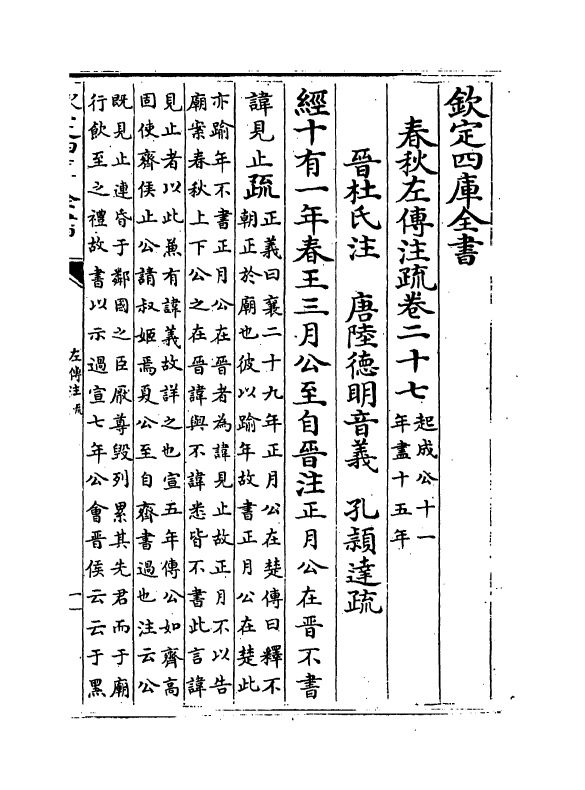 欽定四庫全書
春秋左傳注疏卷二十七
起成公十一
年盡十五年
晉杜氏注 唐陸德明音義 孔穎達疏
經十有一年春王三月公至自晉注正月公在晉不書
諱見止疏
正義曰襄二十九年正月公在楚傳曰釋不
朝正於廟也彼以踰年故書正月公在楚此
亦踰年不書正月公在晉者為諱見止故正月不以告
廟案春秋上下公之在晉諱與不諱悉皆不書此言諱
見止者以此兼有諱義故詳之也宣五年傳公如齊高
固使齊侯止公請叔姬焉夏公至自齊書過也注云公
既見止連昏于鄰國之臣厭尊毀列累其先君而于廟
行飲至之禮故書以示過宣七年公會晉侯云云于黑
左傳注
一